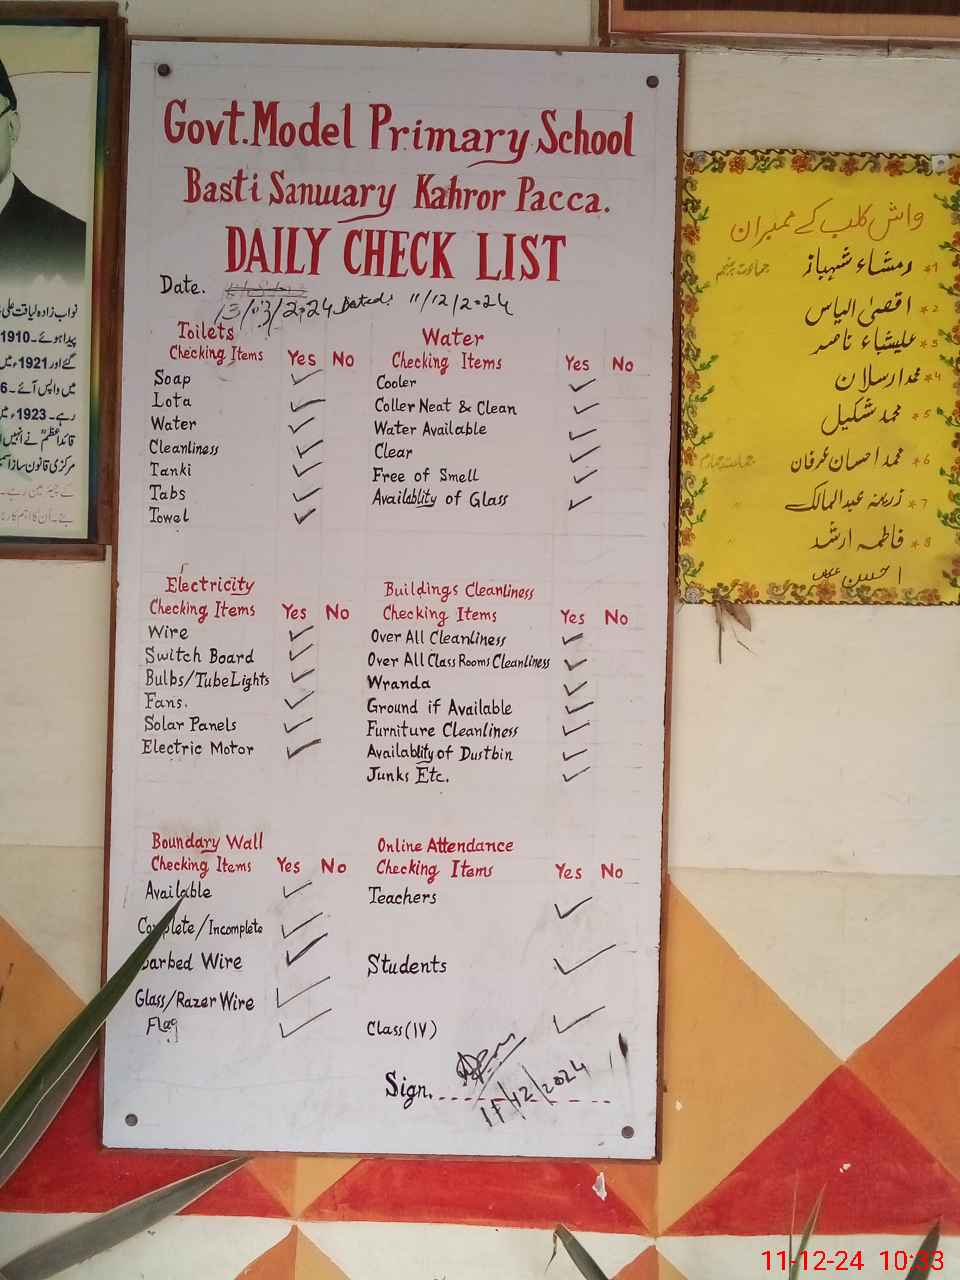 Govt. Model Primary School
Basti Sanwary Kahror Pacca.
DAILY CHECK LIST
Date.
13/03/2024 Dated: 11/12/2024
Toilets
Checking Items Yes No
Soap ✓
Lota ✓
Water ✓
Cleanliness ✓
Tanki ✓
Tabs ✓
Towel ✓
Water
Checking Items Yes No
Cooler ✓
Coller Neat & Clean ✓
Water Available ✓
Clear ✓
Free of Smell ✓
Availablity of Glass ✓
Electricity
Checking Items Yes No
Wire ✓
Switch Board ✓
Bulbs/Tube Lights ✓
Fans. ✓
Solar Panels ✓
Electric Motor ✓
Buildings Cleanliness
Checking Items Yes No
Over All Cleanliness ✓
Over All Class Rooms Cleanliness ✓
Wranda ✓
Ground if Available ✓
Furniture Cleanliness ✓
Availablity of Dustbin ✓
Junks Etc. ✓
Boundary Wall
Checking Items Yes No
Available ✓
/Incomplete ✓
Wire ✓
Glass/Razer Wire ✓
Flag ✓
Online Attendance
Checking Items Yes No
Teachers ✓
Students ✓
Class (IV) ✓
Sign.
11/12/2024
واش کلب کے ممبران
1* رمشاء شہباز جماعت پنجم
2* اقصیٰ الیاس
3* علیشباء ناصر
4* محمد ارسلان
5* محمد شکیل
6* محمد احسان عرفان جماعت چہارم
7* زرینہ عبدالمالک
8* فاطمہ ارشد
نواب زادہ لیاقت علی
پیدا ہوئے۔ 1910
گئے اور 1921ء میں
میں واپس آئے۔
رہے۔ 1923ء میں
قائداعظمؒ نے انہیں
مرکزی قانون ساز
11-12-24 10:33